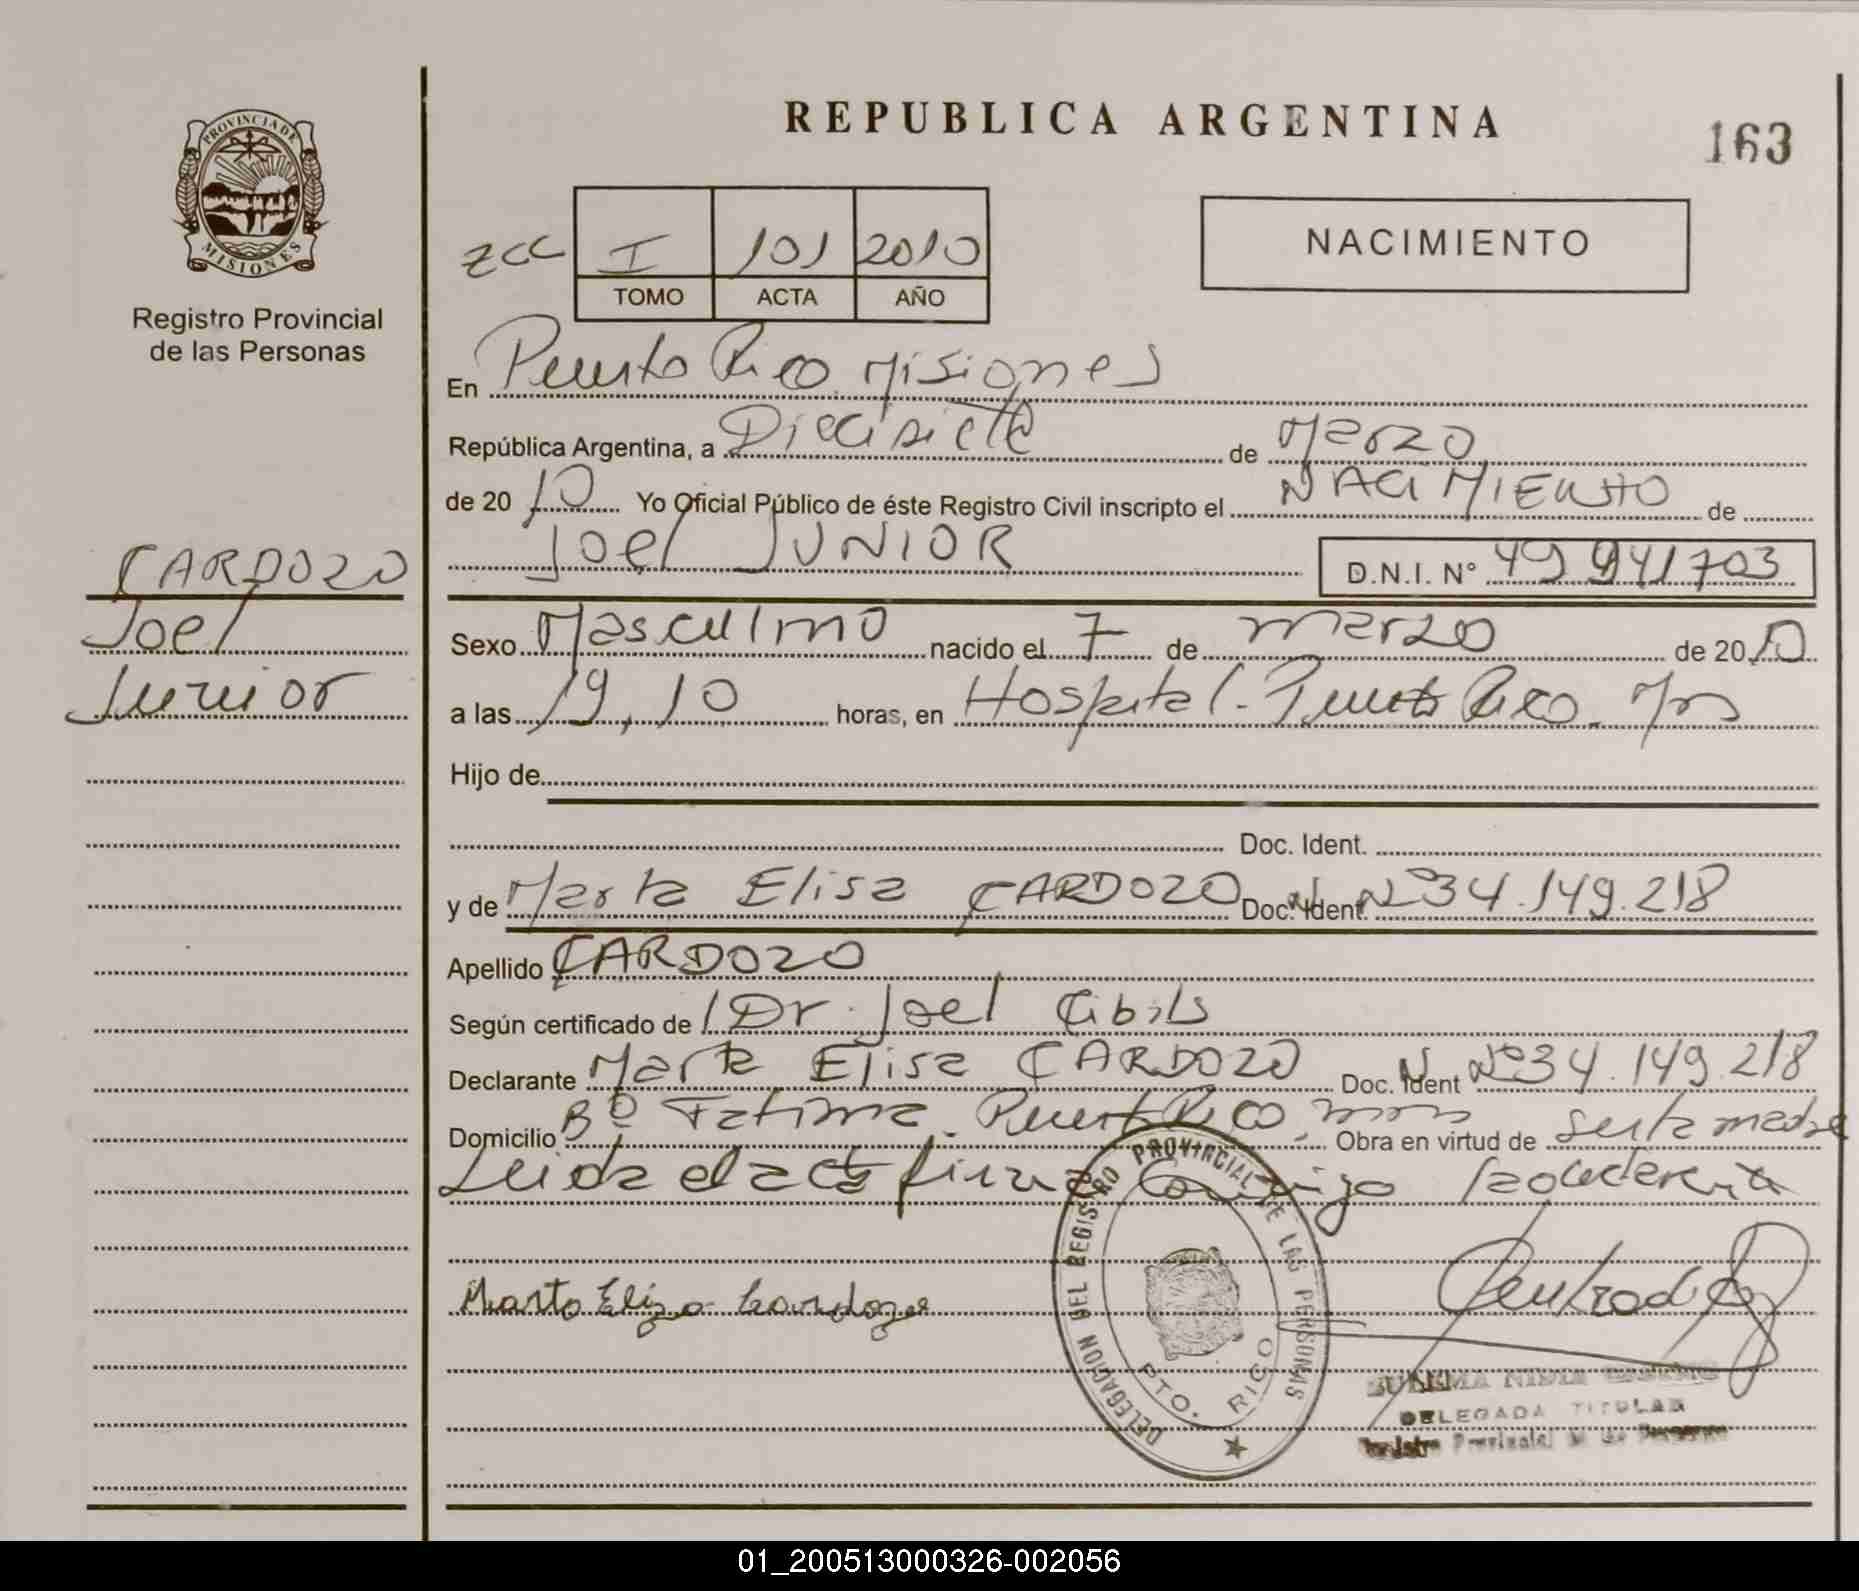 PROVINCIA DE
MISIONES
Registro Provincial
de las Personas
CARDOZO
Joel
Junior
REPUBLICA ARGENTINA
163
I 101 2010
TOMO ACTA AÑO
NACIMIENTO
En Puerto Rico Misiones
República Argentina, a Diecisiete de Marzo
de 2010 Yo Oficial Público de éste Registro Civil inscripto el NACIMIENTO de
Joel JUNIOR D.N.I. N° 49 941703
Sexo Masculino nacido el 7 de marzo de 2010
a las 19,10 horas, en Hospital - Puerto Rico. Mns
Hijo de
Doc. Ident.
y de Marta Elisa CARDOZO Doc. Ident. N° 34.149.218
Apellido CARDOZO
Según certificado de Dr. Joel Cibils
Declarante Marta Elisa CARDOZO Doc. Ident N° 34.149.218
Domicilio B° Fatima. Puerto Rico. Obra en virtud de ser la madre
Leida el acta firma Conmigo la declarante
Marta Eliza Cardozo
DELEGACION DEL REGISTRO PROVINCIAL DE LAS PERSONAS
PTO. RICO
DELEGADA TITULAR
Registro Provincial de las Personas
01_200513000326-002056